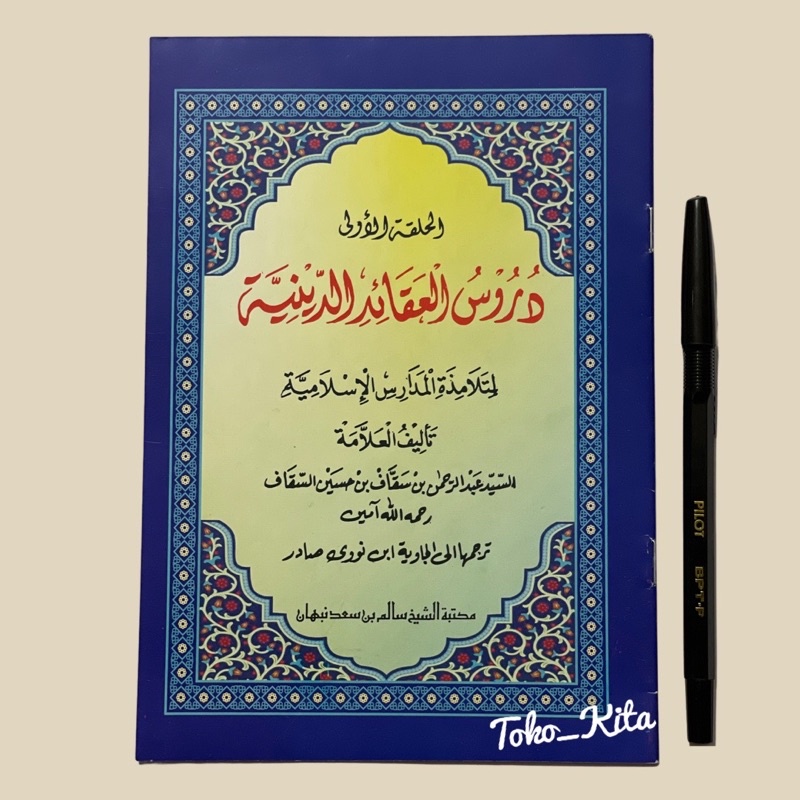 الحلقة الأولى
دُرُوْسُ الْعَقَائِدِ الدِّيْنِيَّةِ
لِتَلَامِذَةِ الْمَدَارِسِ الْإِسْلَامِيَّةِ
تَأْلِيْفُ الْعَلَّامَةْ
السّيّد عبد الرحمن بن سقّاف بن حسين السّقاف
رحمه الله آمين
ترجمها الى الجاوية ابن نووى صادر
مكتبة الشيخ سالم بن سعد نبهان
PILOT BPT-P
Toko_Kita